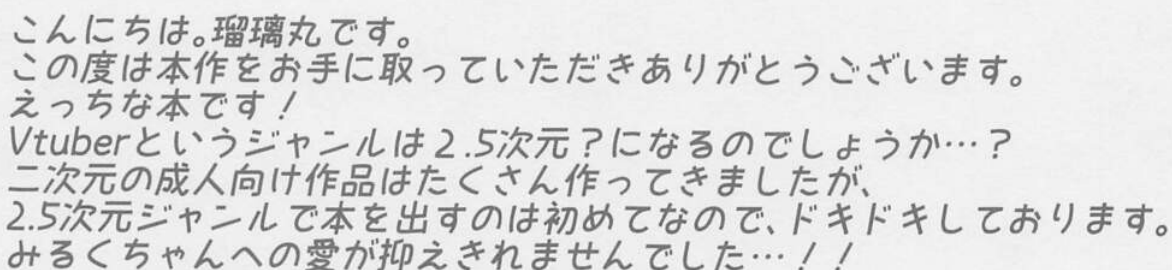 こんにちは。瑠璃丸です。
この度は本作をお手に取っていただきありがとうございます。
えっちな本です！
Vtuberというジャンルは2.5次元？になるのでしょうか…？
二次元の成人向け作品はたくさん作ってきましたが、
2.5次元ジャンルで本を出すのは初めてなので、ドキドキしております。
みるくちゃんへの愛が抑えきれませんでした…！！